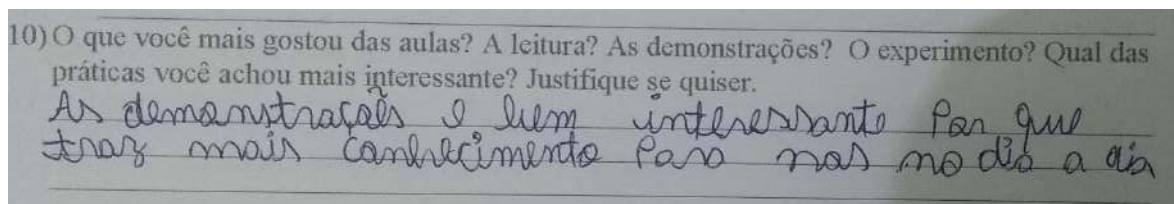 10) O que você mais gostou das aulas? A leitura? As demonstrações? O experimento? Qual das
práticas você achou mais interessante? Justifique se quiser.
As demonstraçães e bem interessante Por que
traz mais conhecimento Para nos no dia a dia